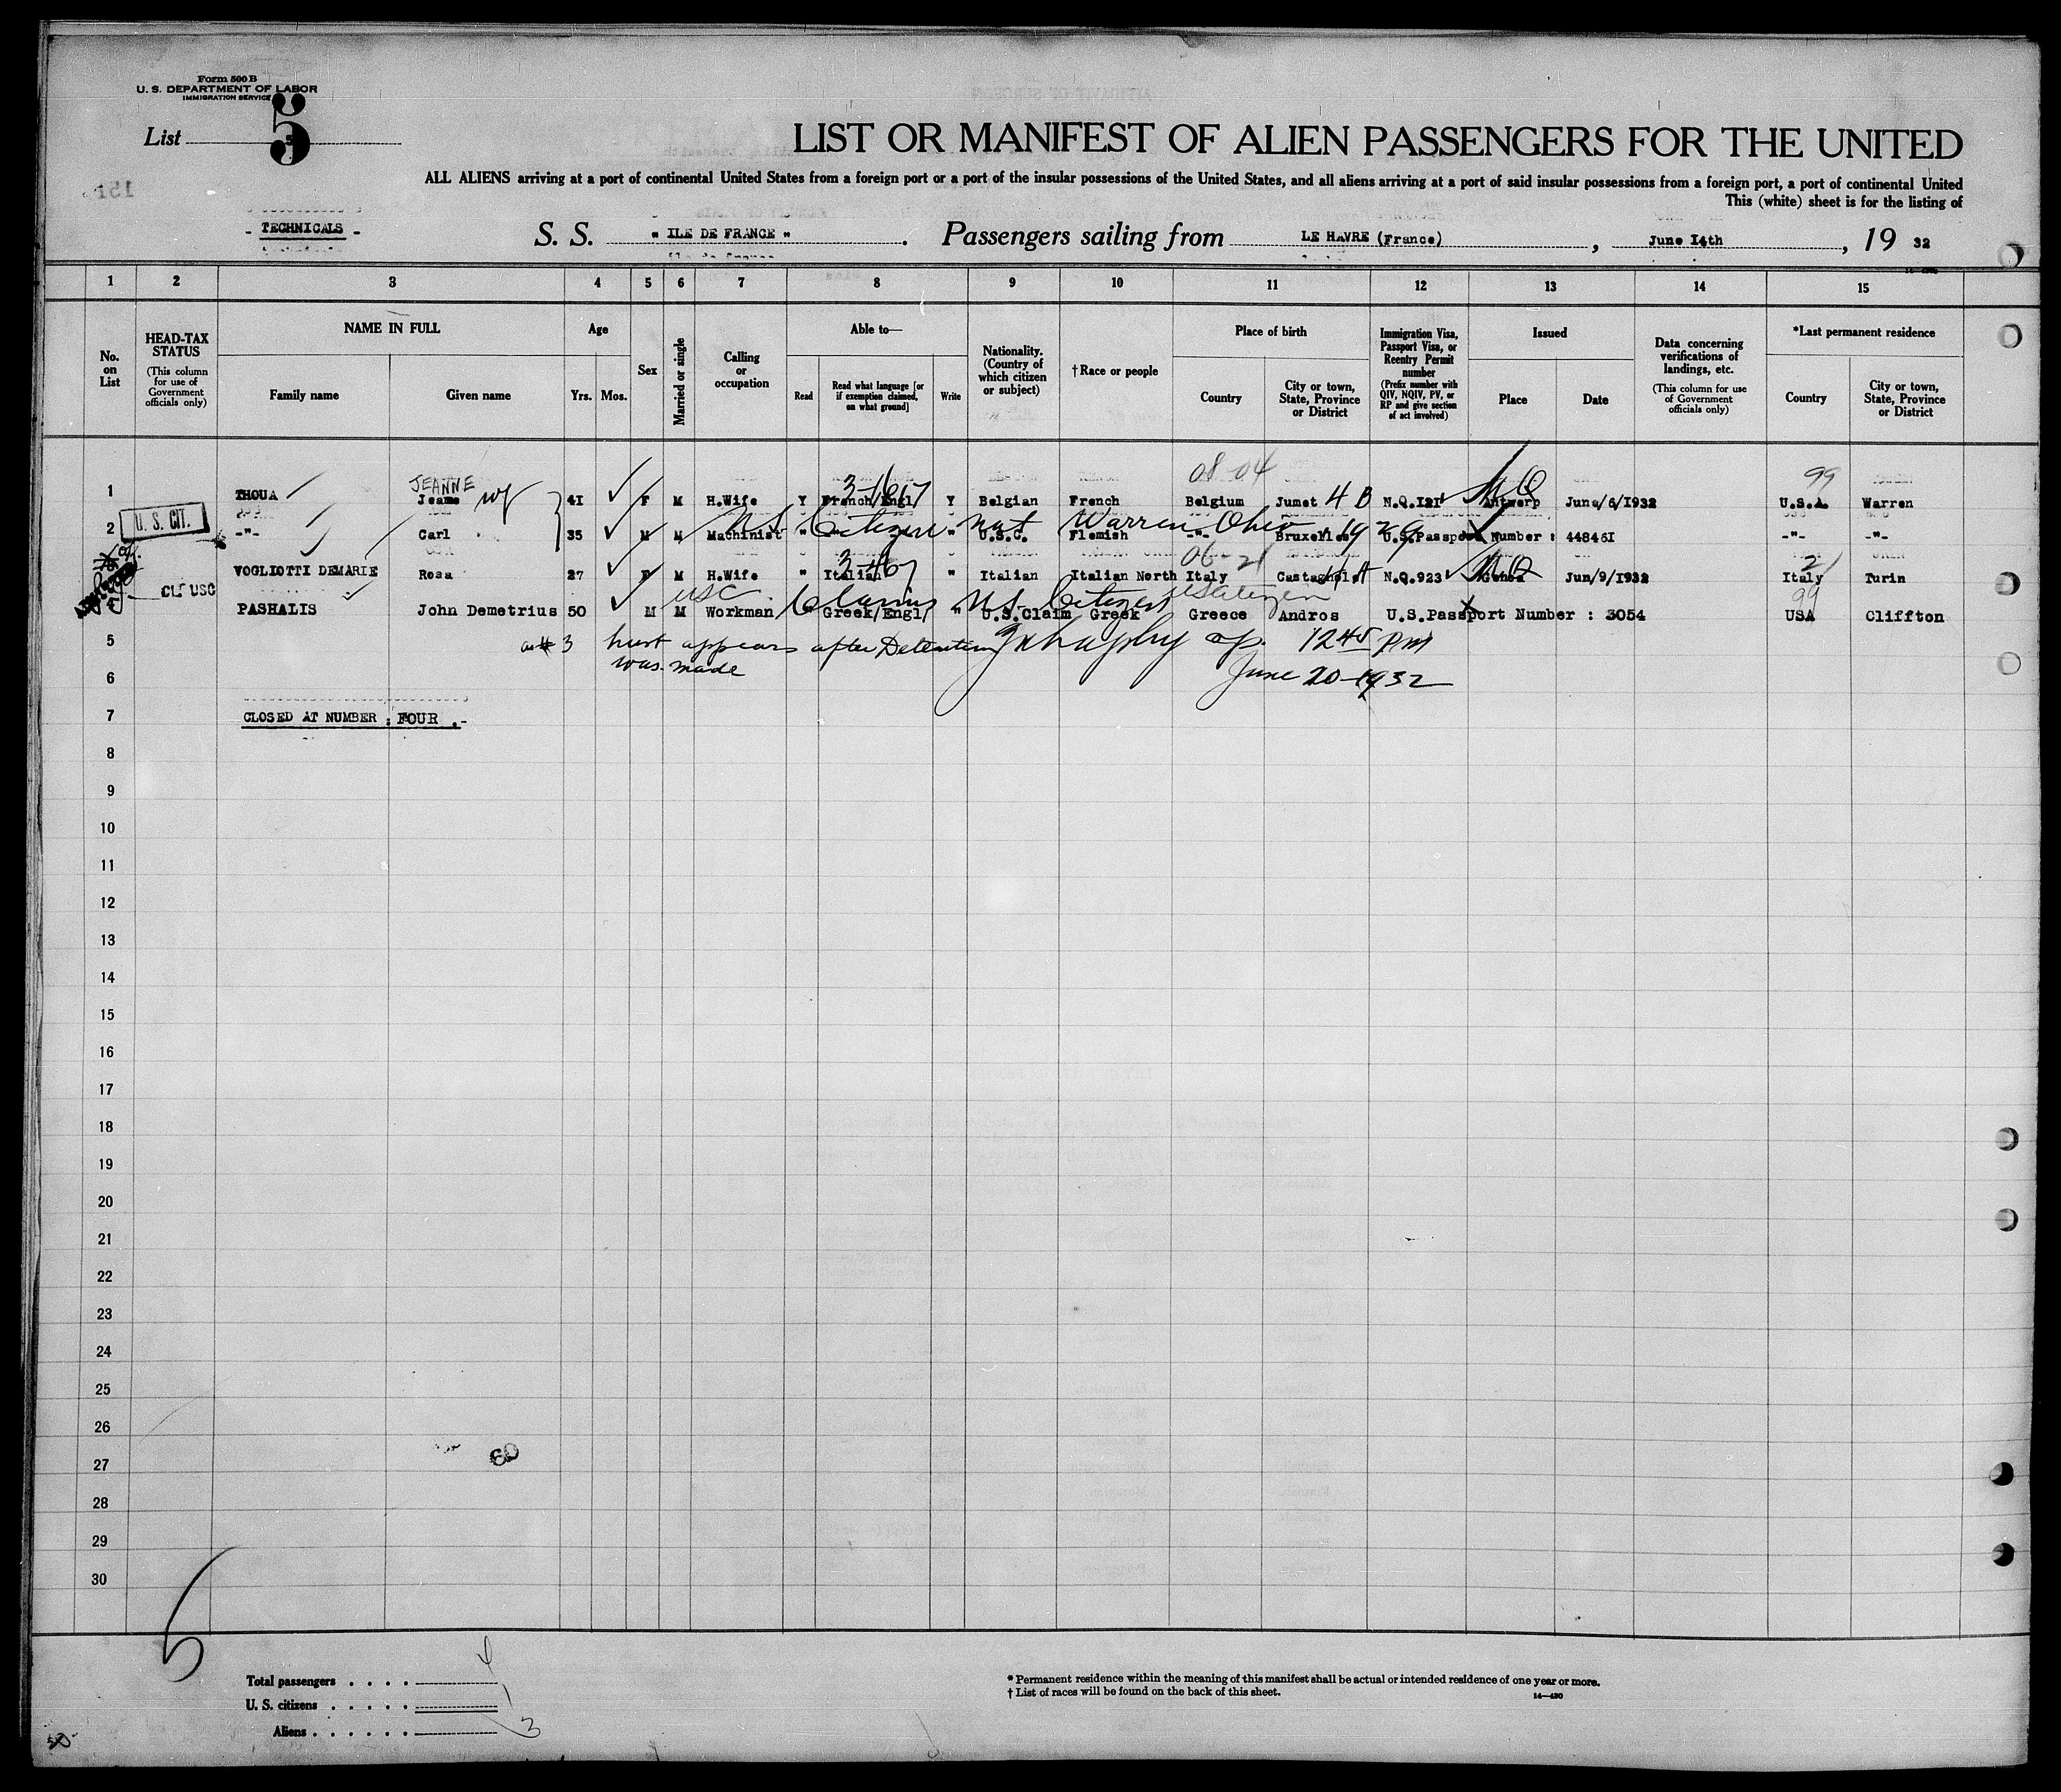 Form 500 B
U. S. DEPARTMENT OF LABOR
IMMIGRATION SERVICE
List 5
LIST OR MANIFEST OF ALIEN PASSENGERS FOR THE UNITED
ALL ALIENS arriving at a port of continental United States from a foreign port or a port of the insular possessions of the United States, and all aliens arriving at a port of said insular possessions from a foreign port, a port of continental United
This (white) sheet is for the listing of
- TECHNICALS -
S. S. " ILE DE FRANCE " . Passengers sailing from LE HAVRE (France) , June 14th , 19 32
1 2 3 4 5 6 7 8 9 10 11 12 13 14 15
No. on List
HEAD-TAX STATUS
(This column for use of Government officials only)
NAME IN FULL
Family name Given name
Age
Yrs. Mos.
Sex
Married or single
Calling or occupation
Able to—
Read
Read what language [or if exemption claimed, on what ground]
Write
Nationality. (Country of which citizen or subject)
†Race or people
Place of birth
Country
City or town, State, Province or District
Immigration Visa, Passport Visa, or Reentry Permit number
(Prefix number with QIV, NQIV, PV, or RP and give section of act involved)
Issued
Place Date
Data concerning verifications of landings, etc.
(This column for use of Government officials only)
*Last permanent residence
Country
City or town, State, Province or District
JEANNE 08-04 99
1 THOUA Jeane wf 41 F M H.Wife Y French/Engl Y Belgian French Belgium Jumet 4 B N.Q.I2I NQ Antwerp June/6/1932 U.S.A. Warren
U. S. CIT.
U.S. Citizen nat Warren Ohio 1929
2 -"- Carl 35 M M Machinist " " " U.S.C. Flemish -"- Bruxelles U.S.Passport Number : 448461 -"- -"-
06-21 21
VOGLIOTTI DEMARIE Rosa 27 F M H.Wife " Italian " Italian Italian North Italy N.Q.923 NQ Genoa Jun/9/1932 Italy Turin
USC Claims U.S. Citizen US Citizen 99
Clf USC PASHALIS John Demetrius 50 M M Workman Greek/Engl " U.S.Claim Greek Greece Andros U.S.Passport Number : 3054 USA Cliffton
5 as # 3 hust appears after Detention 12 45 PM
6 was made June 20-1932
7 CLOSED AT NUMBER : FOUR .-
8
9
10
11
12
13
14
15
16
17
18
19
20
21
22
23
24
25
26
27
28
29
30
5
Total passengers . . . . 4
U. S. citizens . . . . . 1
Aliens . . . . . . 3
* Permanent residence within the meaning of this manifest shall be actual or intended residence of one year or more.
† List of races will be found on the back of this sheet.
14—430